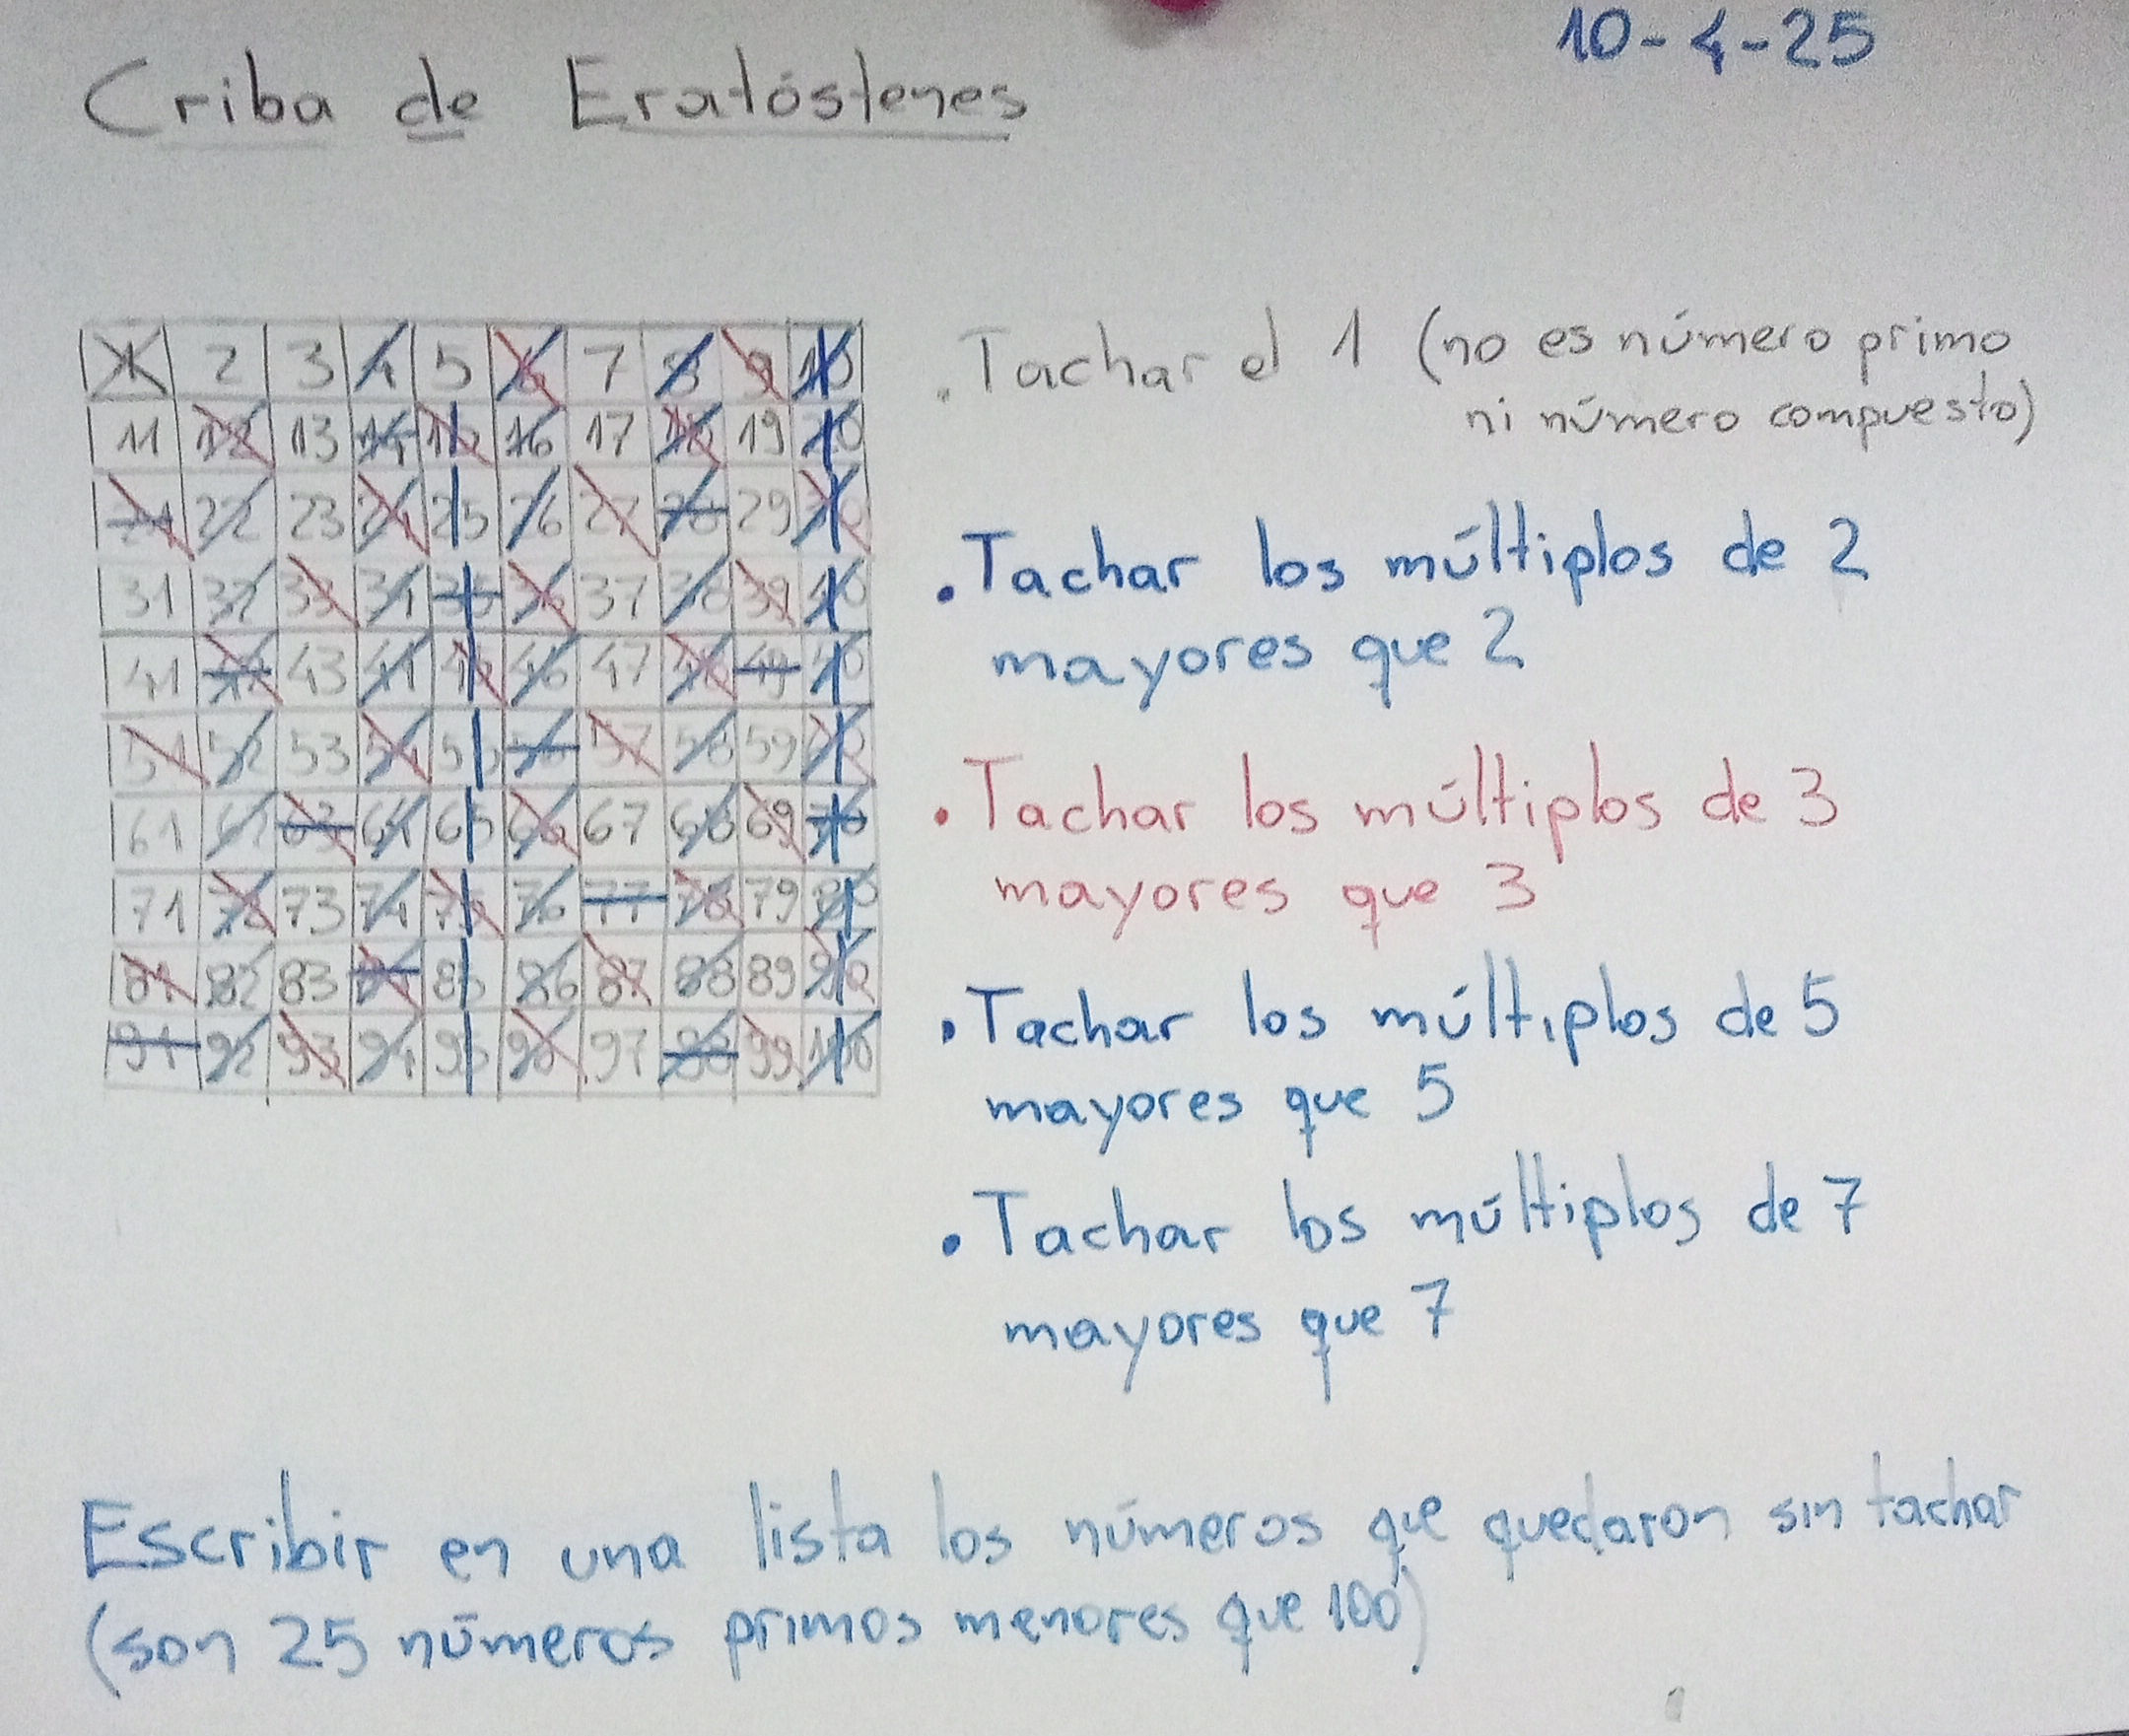 10-4-25
Criba de Eratóstenes
1 2 3 4 5 6 7 8 9 10
11 12 13 14 15 16 17 18 19 20
21 22 23 24 25 26 27 28 29 30
31 32 33 34 35 36 37 38 39 40
41 42 43 44 45 46 47 48 49 50
51 52 53 54 55 56 57 58 59 60
61 62 63 64 65 66 67 68 69 70
71 72 73 74 75 76 77 78 79 80
81 82 83 84 85 86 87 88 89 90
91 92 93 94 95 96 97 98 99 100
. Tachar el 1 (no es número primo
ni número compuesto)
. Tachar los múltiplos de 2
mayores que 2
. Tachar los múltiplos de 3
mayores que 3
. Tachar los múltiplos de 5
mayores que 5
. Tachar los múltiplos de 7
mayores que 7
Escribir en una lista los números que quedaron sin tachar
(son 25 números primos menores que 100)